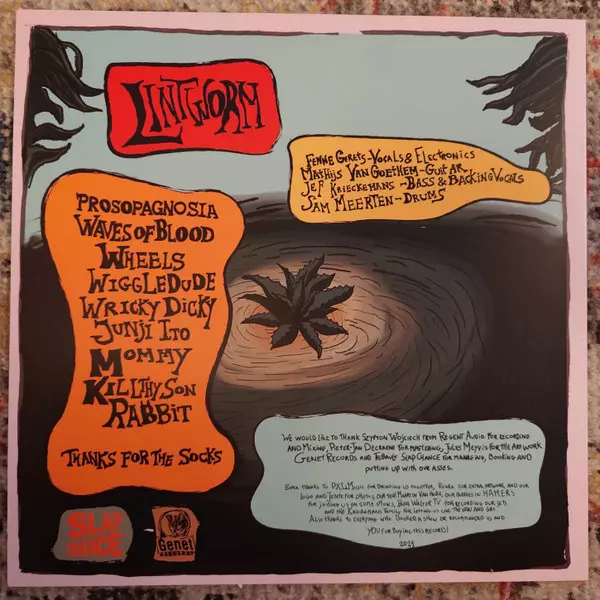 LINTWORM
FENNE GEERTS-VOCALS & ELECTRONICS
MATHIJS VAN GOETHEM-GUITAR
JEF KRIECKEMANS-BASS & BACKING VOCALS
SAM MEERTEN-DRUMS
PROSOPAGNOSIA
WAVES OF BLOOD
WHEELS
WIGGLEDUDE
WRICKY DICKY
JUNJI ITO
MOMMY
KILL THY SON
RABBIT
THANKS FOR THE SOCKS
WE WOULD LIKE TO THANK SZYMON WOJCIECH FROM REGENT AUDIO FOR RECORDING
AND MIXING, PIETER-JAN DECRAENE FOR MASTERING, JULES MEYVIS FOR THE ARTWORK
GENET RECORDS AND THIBAULT SLAPCHANCE FOR MANAGING, BOOKING AND
PUTTING UP WITH OUR ASSES.
EXTRA THANKS TO PXLMUSIC FOR BRINGING US TOGETHER, FOR EXTRA ARTWORK, AND OUR
LOGO AND FOR PHOTOS, OUR BUDDIES IN HAMERS
FOR JOINING US ON SOME SHOWS, TV FOR RECORDING OUR
AND THE FAMILY FOR LETTING US USE THE VAN AND GAS
ALSO THANKS TO EVERYONE WHO BOOKED A SHOW OR RECOMMENDED US AND
YOU FOR BUYING THIS RECORD!
2024
SLAP
CHANCE
Genet
RECORDS